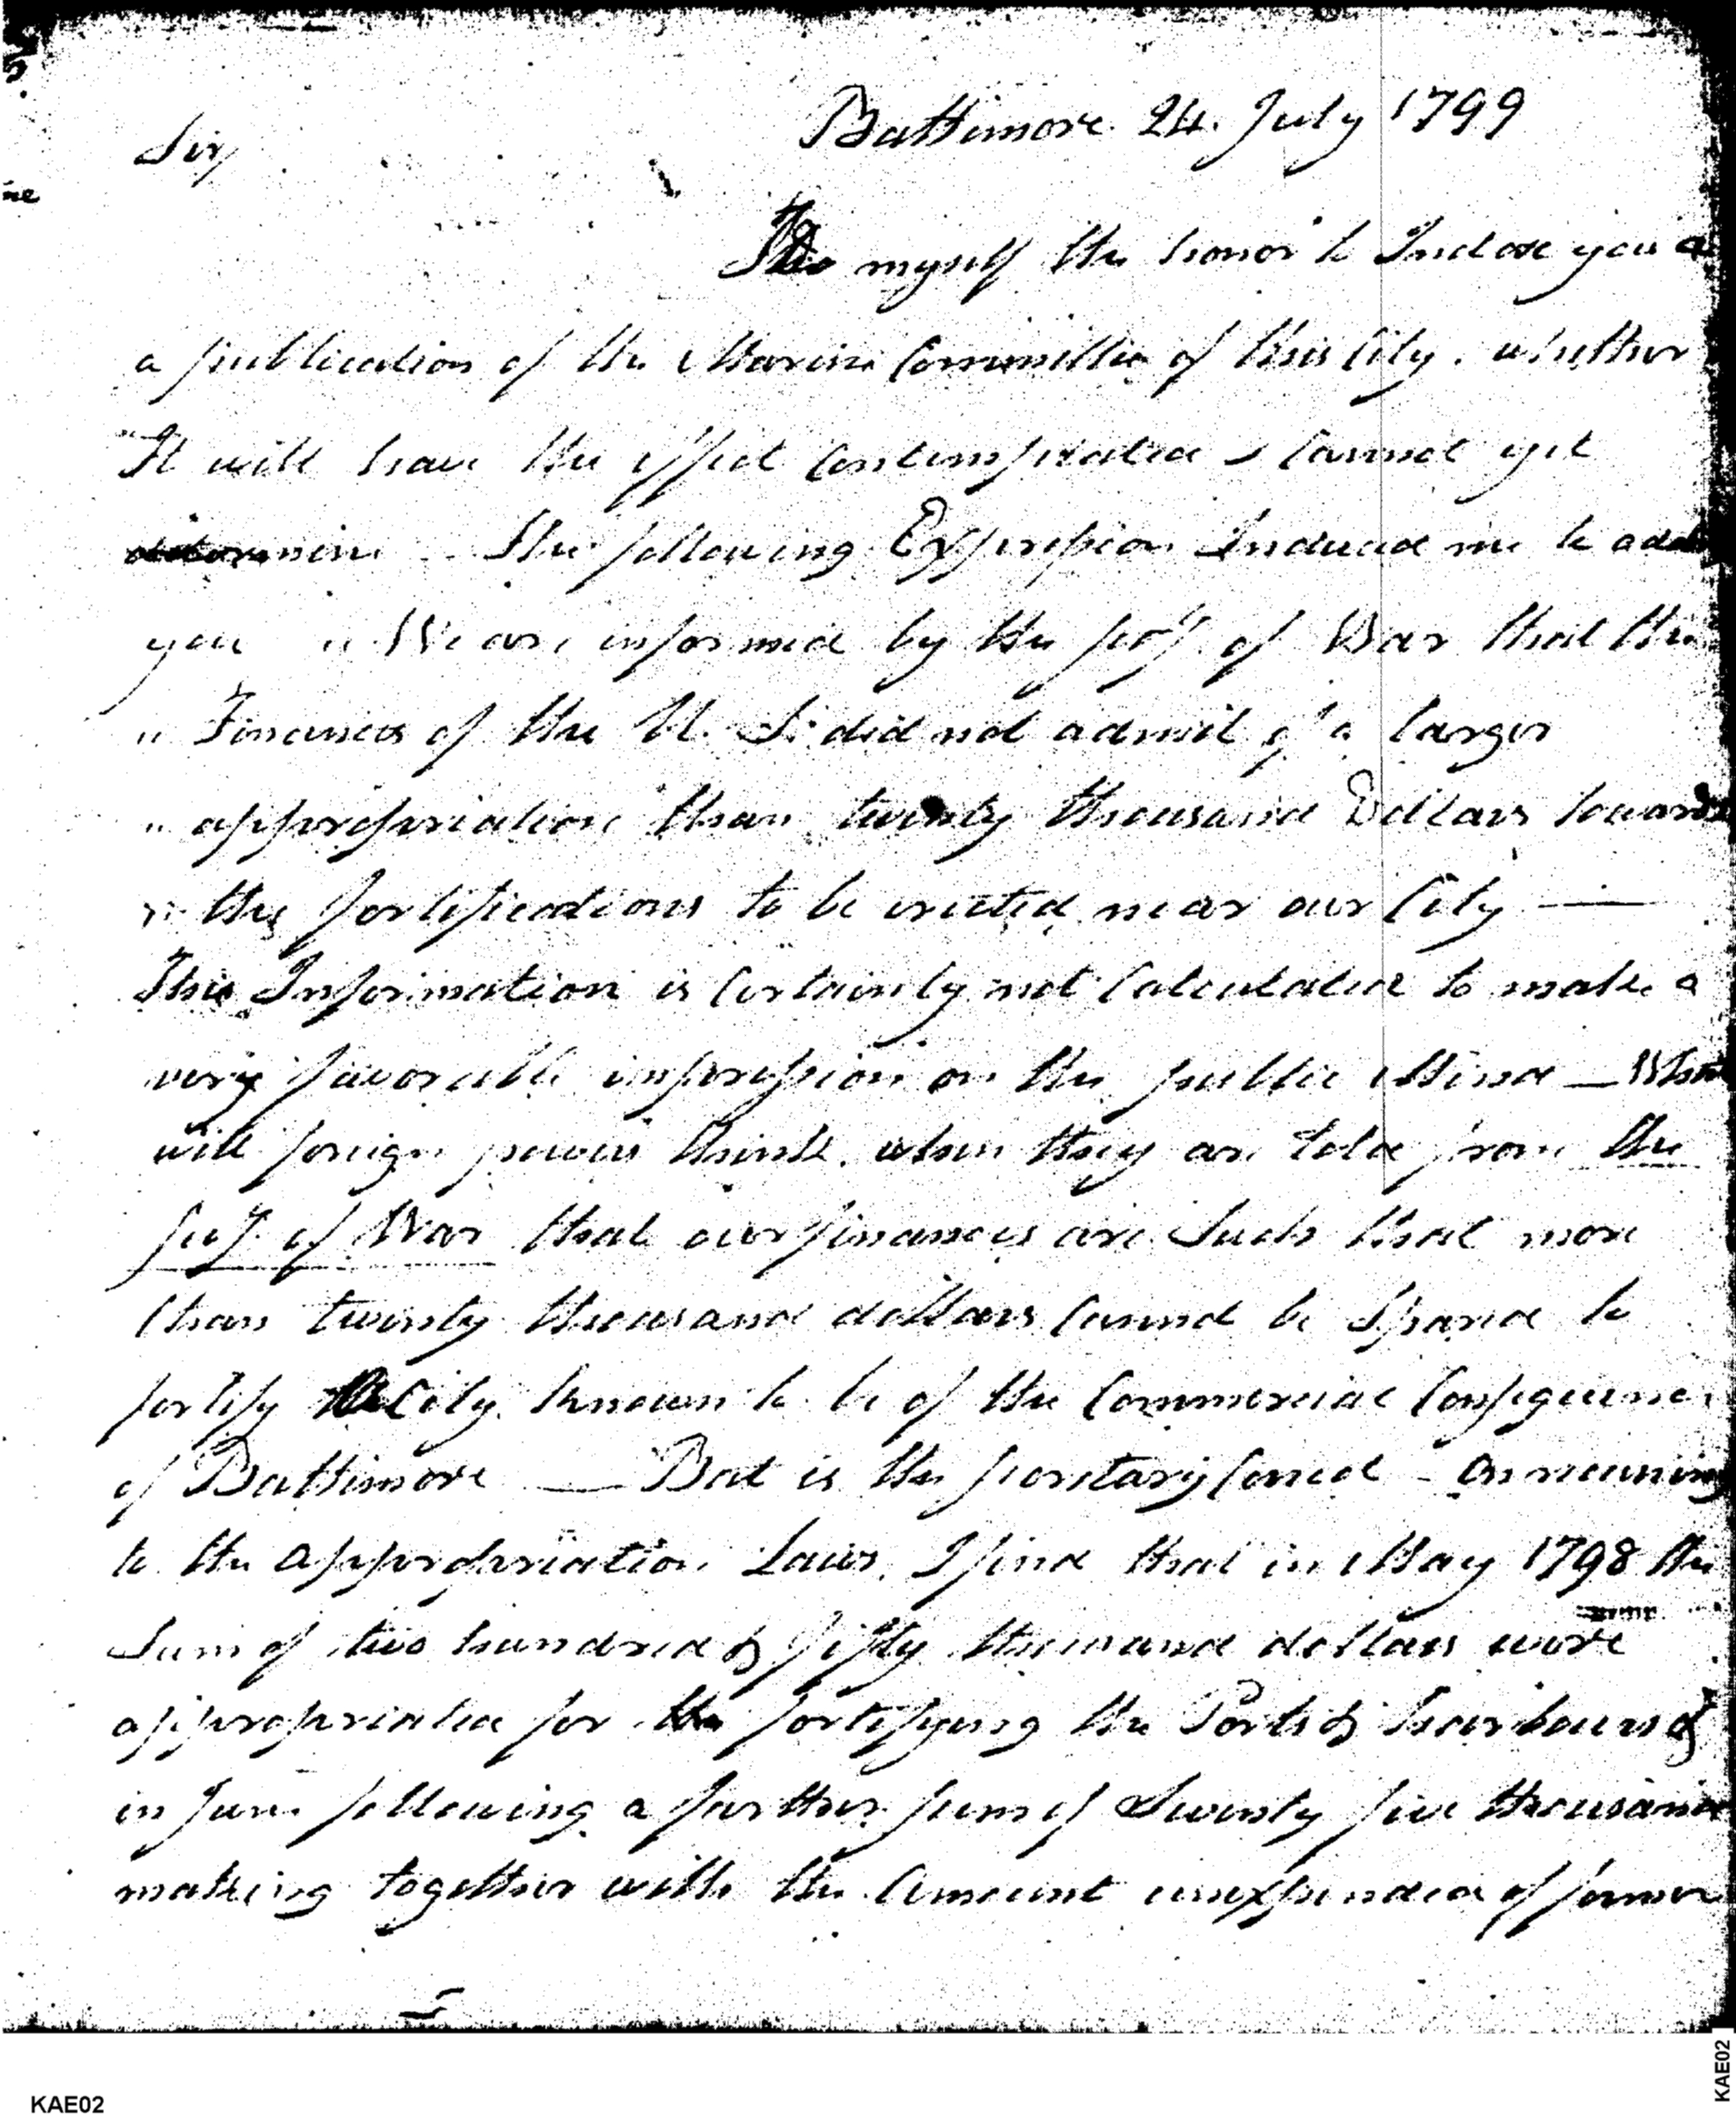 Baltimore 24. July 1799
Sir
I do myself the honor to Inclose you a
a publication of the Marine Committee of this City. whether
It will have the effect Contemplated I Cannot yet
determine — The following Expression Induced me to add
you " We are informed by the secy of War that the
" Finances of the U. S. did not admit of a larger
" appropriation than twenty thousand Dollars towards
" the fortifications to be erected near our City —
This Information is Certainly not Calculated to make a
very favorable impression on the public Mind — What
will foreign powers think, when they are told from the
secy of War that our finances are Such that more
than twenty thousand dollars Cannot be Spared to
fortify a City known to be of the Commercial Consequence
of Baltimore — But is the secretary Correct — On recurring
to the Appropriation Laws, I find that in May 1798 the
Sum of two hundred & fifty thousand dollars were
appropriated for the fortifying the Ports & harbours &
in June following a further sum of Twenty five thousand
making together with the Amount unexpended of former
KAE02
KAE02